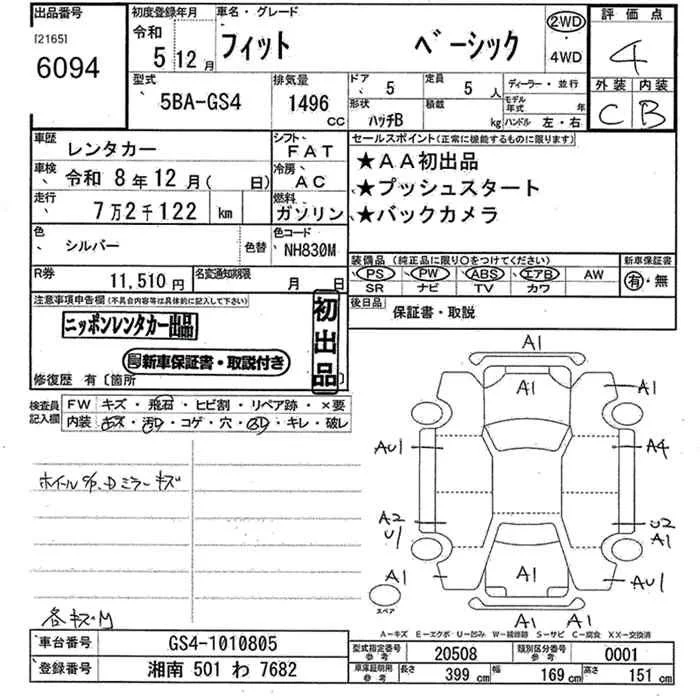 出品番号 初度登録年月 車名・グレード 評価点
[2165] 令和 フィット ベーシック 2WD
6094 5 12月 ・4WD 4
型式 排気量 ドア 5 定員 5人 ディーラー・並行 外装 内装
5BA-GS4 1496 CC 形状 ハッチB 積載 kg モデル年式 年 ハンドル 左・右 C B
車歴 レンタカー シフト FAT セールスポイント(正常に機能するものに限ります)
車検 令和 8年12月( 日) 冷房 AC ★AA初出品
走行 7万2千122 km 燃料 ガソリン ★プッシュスタート
★バックカメラ
色 シルバー 色替 色コード NH830M
装備品(純正品に限り○をつけてください) 新車保証書
R券 11,510円 名変通知期限 月 日 PS PW ABS エアB AW 有・無
SR ナビ TV カワ
注意事項申告欄(不具合内容等は具体的に記入して下さい) 初出品 後日品 保証書・取説
ニッポンレンタカー出品
新車保証書・取説付き
修復歴 有〔箇所 〕
検査員記入欄 FW キズ・飛石・ヒビ割・リペア跡・×要
内装 キズ・汚れ・コゲ・穴・・キレ・破レ
ホイール Dミラーキズ
各キズ・M
A1
A1 A1
AU1 A4
A2 U2
U1 A1
A1 A1 AU1
スペア
A1 A1
A-キズ E-エクボ U-凹み W-補修跡 S-サビ C-腐食 XX-交換済
車台番号 GS4-1010805 型式指定番号 参考 20508 類別区分番号 参考 0001
登録番号 湘南 501 わ 7682 車庫証明用 参考 長さ 399 cm 幅 169 cm 高さ 151 cm